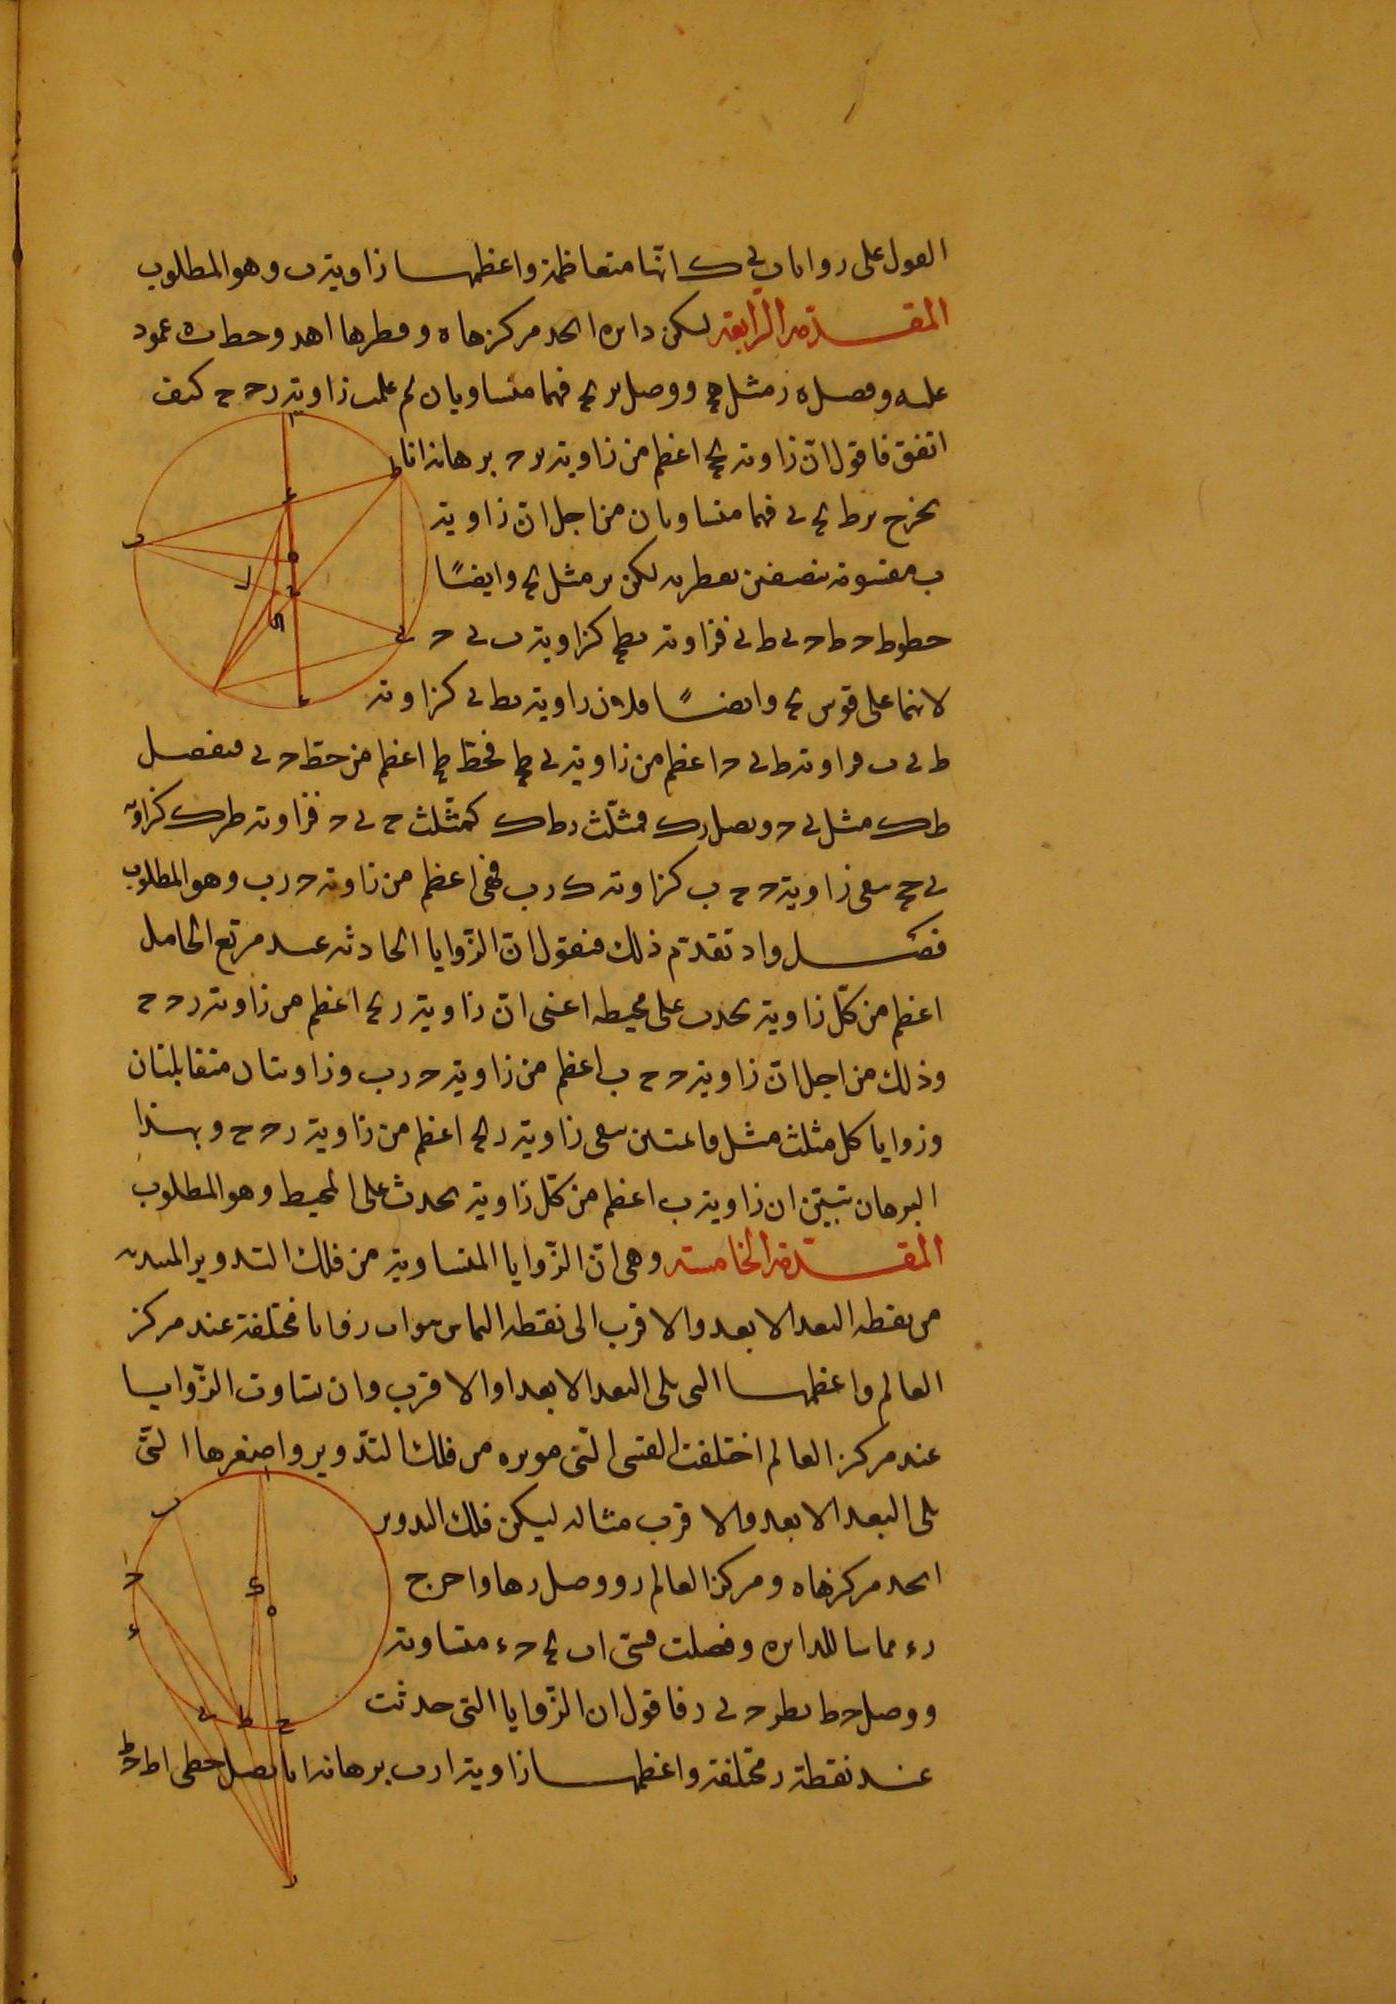 القول على زوايا ب ى ك انّها متعاظمة واعظمها زاوية ب وهو المطلوب
المقدّمة الرّابعة ليكن دايره ا ب ح د مركزها ه وقطرها ا ه د وخط ب ه عمود
عليه وفصل ه ر مثل ه ح ووصل ب ر ب ح فهما متساويان ثم عملت زاوية ر ح كيف
اتفق فاقول انّ زاوية ب ح اعظم من زاوية ب ر ح برهانه انا
نخرج ب ر ط ب ح ى فهما متساويان من اجل انّ زاوية
ب مقسومة بنصفين بقطر ب ه لكن ب ر مثل ب ح وايضًا
خطوط ح ط ح ى ط ى فزاوية ب ط ح كزاوية ب ى ح
لانهما على قوس ب ح وايضًا فلان زاوية ب ط ى كزاوية
ط ى ب فزاوية ط ى ح اعظم من زاوية ى ط ح فخط ط ح اعظم من خط ح ى فنفصل
ط ك مثل ى ح ونصل ر ك فمثلّث ر ط ك كمثلّث ح ى ح فزاوية ط ر ك كزاوية
ى ح ح تبقى زاوية ح ح ب كزاوية ك ر ب فهى اعظم من زاوية ح ر ب وهو المطلوب
فصل واذ تقدّم ذلك فنقول انّ الزّوايا الحادثه عند مربّع الحامل
اعظم من كلّ زاوية تحدث على محيطه اعنى انّ زاوية ر ب ح اعظم من زاوية ر ح ح
وذلك من اجل انّ زاوية ح ح ب اعظم من زاوية ح ر ب وزاويتان متقابلتان
وزوايا كل مثلث مثل قائمتين تبقى زاوية ر ب ح اعظم من زاوية ر ح ح وبهذا
البرهان تبيّن ان زاوية ب اعظم من كلّ زاوية تحدث على المحيط وهو المطلوب
المقدّمة الخامسة وهى انّ الزّوايا المتساوية من فلك التدوير المبتدئه
من نقطه البعد الابعد والاقرب الى نقطه التماس توتر زوايا مختلفة عند مركز
العالم واعظمها التى تلى البعد الابعد او الاقرب وان تساوت الزّوايا
عند مركز العالم اختلفت القسى الّتى توتره من فلك التدوير واصغرها الّتى
تلى البعد الابعد والاقرب مثاله ليكن فلك التدوير
ا ب ح د مركزها ه ومركز العالم ر ووصل ر ه ا واخرج
ر ء مماسا للدايره وفصلت قسى ا ب ب ح ح ء متساوية
ووصل خط ب ط ر ح ى ر فاقول ان الزّوايا التى حدثت
عند نقطة ر مختلفة واعظمها زاوية ا ر ب برهانه انا نصل خطى ا ط ح ط